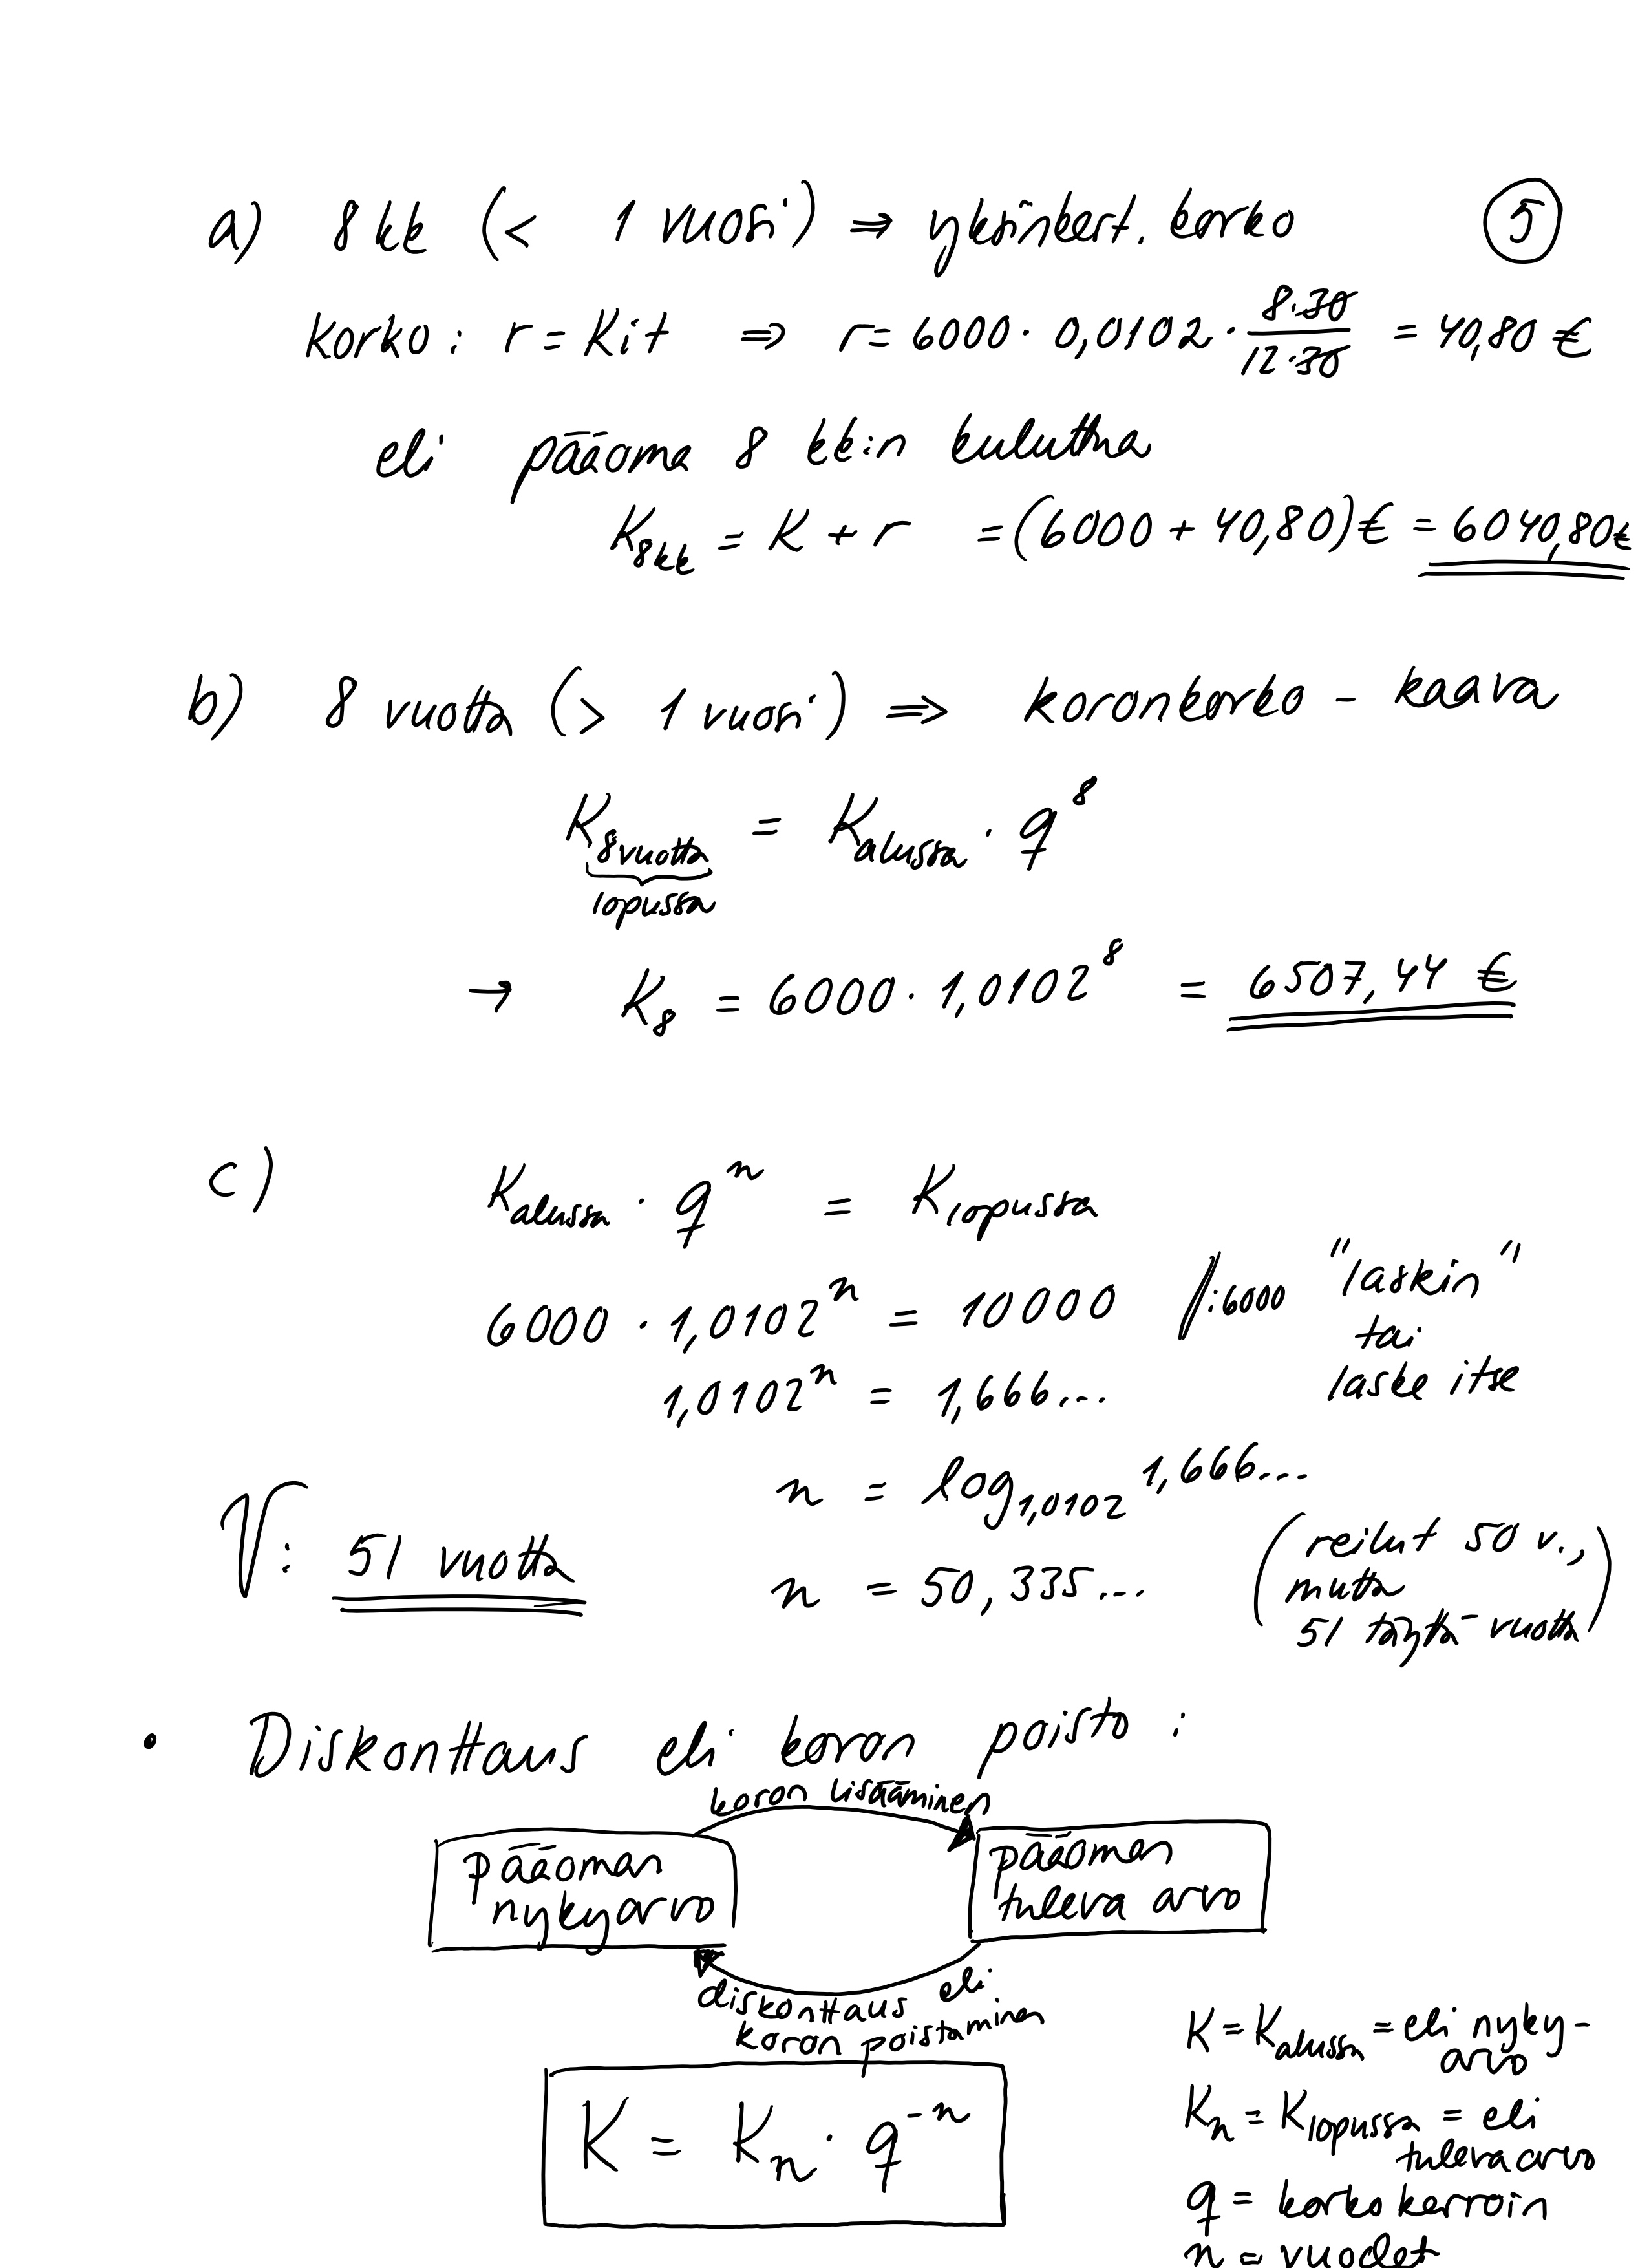 a) 8 kk (< 1 vuosi) ⇒ yksinkert. korko ⑤
korko: r = Kit ⇒ r = 6000 · 0,0102 · (8·30)/(12·30) = 40,80 €
eli pääoma 8 kk:n kuluttua
K_8kk = K + r = (6000 + 40,80)€ = 6040,80€
b) 8 vuotta (> 1 vuosi) ⇒ koronkorko - kaava
K_8vuotta = K_alussa · q^8
lopussa
→ K_8 = 6000 · 1,0102^8 = 6507,44 €
c) K_alussa · q^n = K_lopussa
6000 · 1,0102^n = 10000 /:6000 "laskin"
tai
1,0102^n = 1,666... laske itse
n = log_1,0102 1,666...
V: 51 vuotta n = 50,335... (reilut 50 v.,
mutta
51 täyttä vuotta)
• Diskonttaus eli koron poisto :
koron lisääminen
pääoman
nykyarvo
pääoman
tuleva arvo
diskonttaus eli
koron poistaminen
K = K_n · q^-n
K = K_alussa = eli nyky-
arvo
K_n = K_lopussa = eli
tuleva arvo
q = korkokerroin
n = vuodet